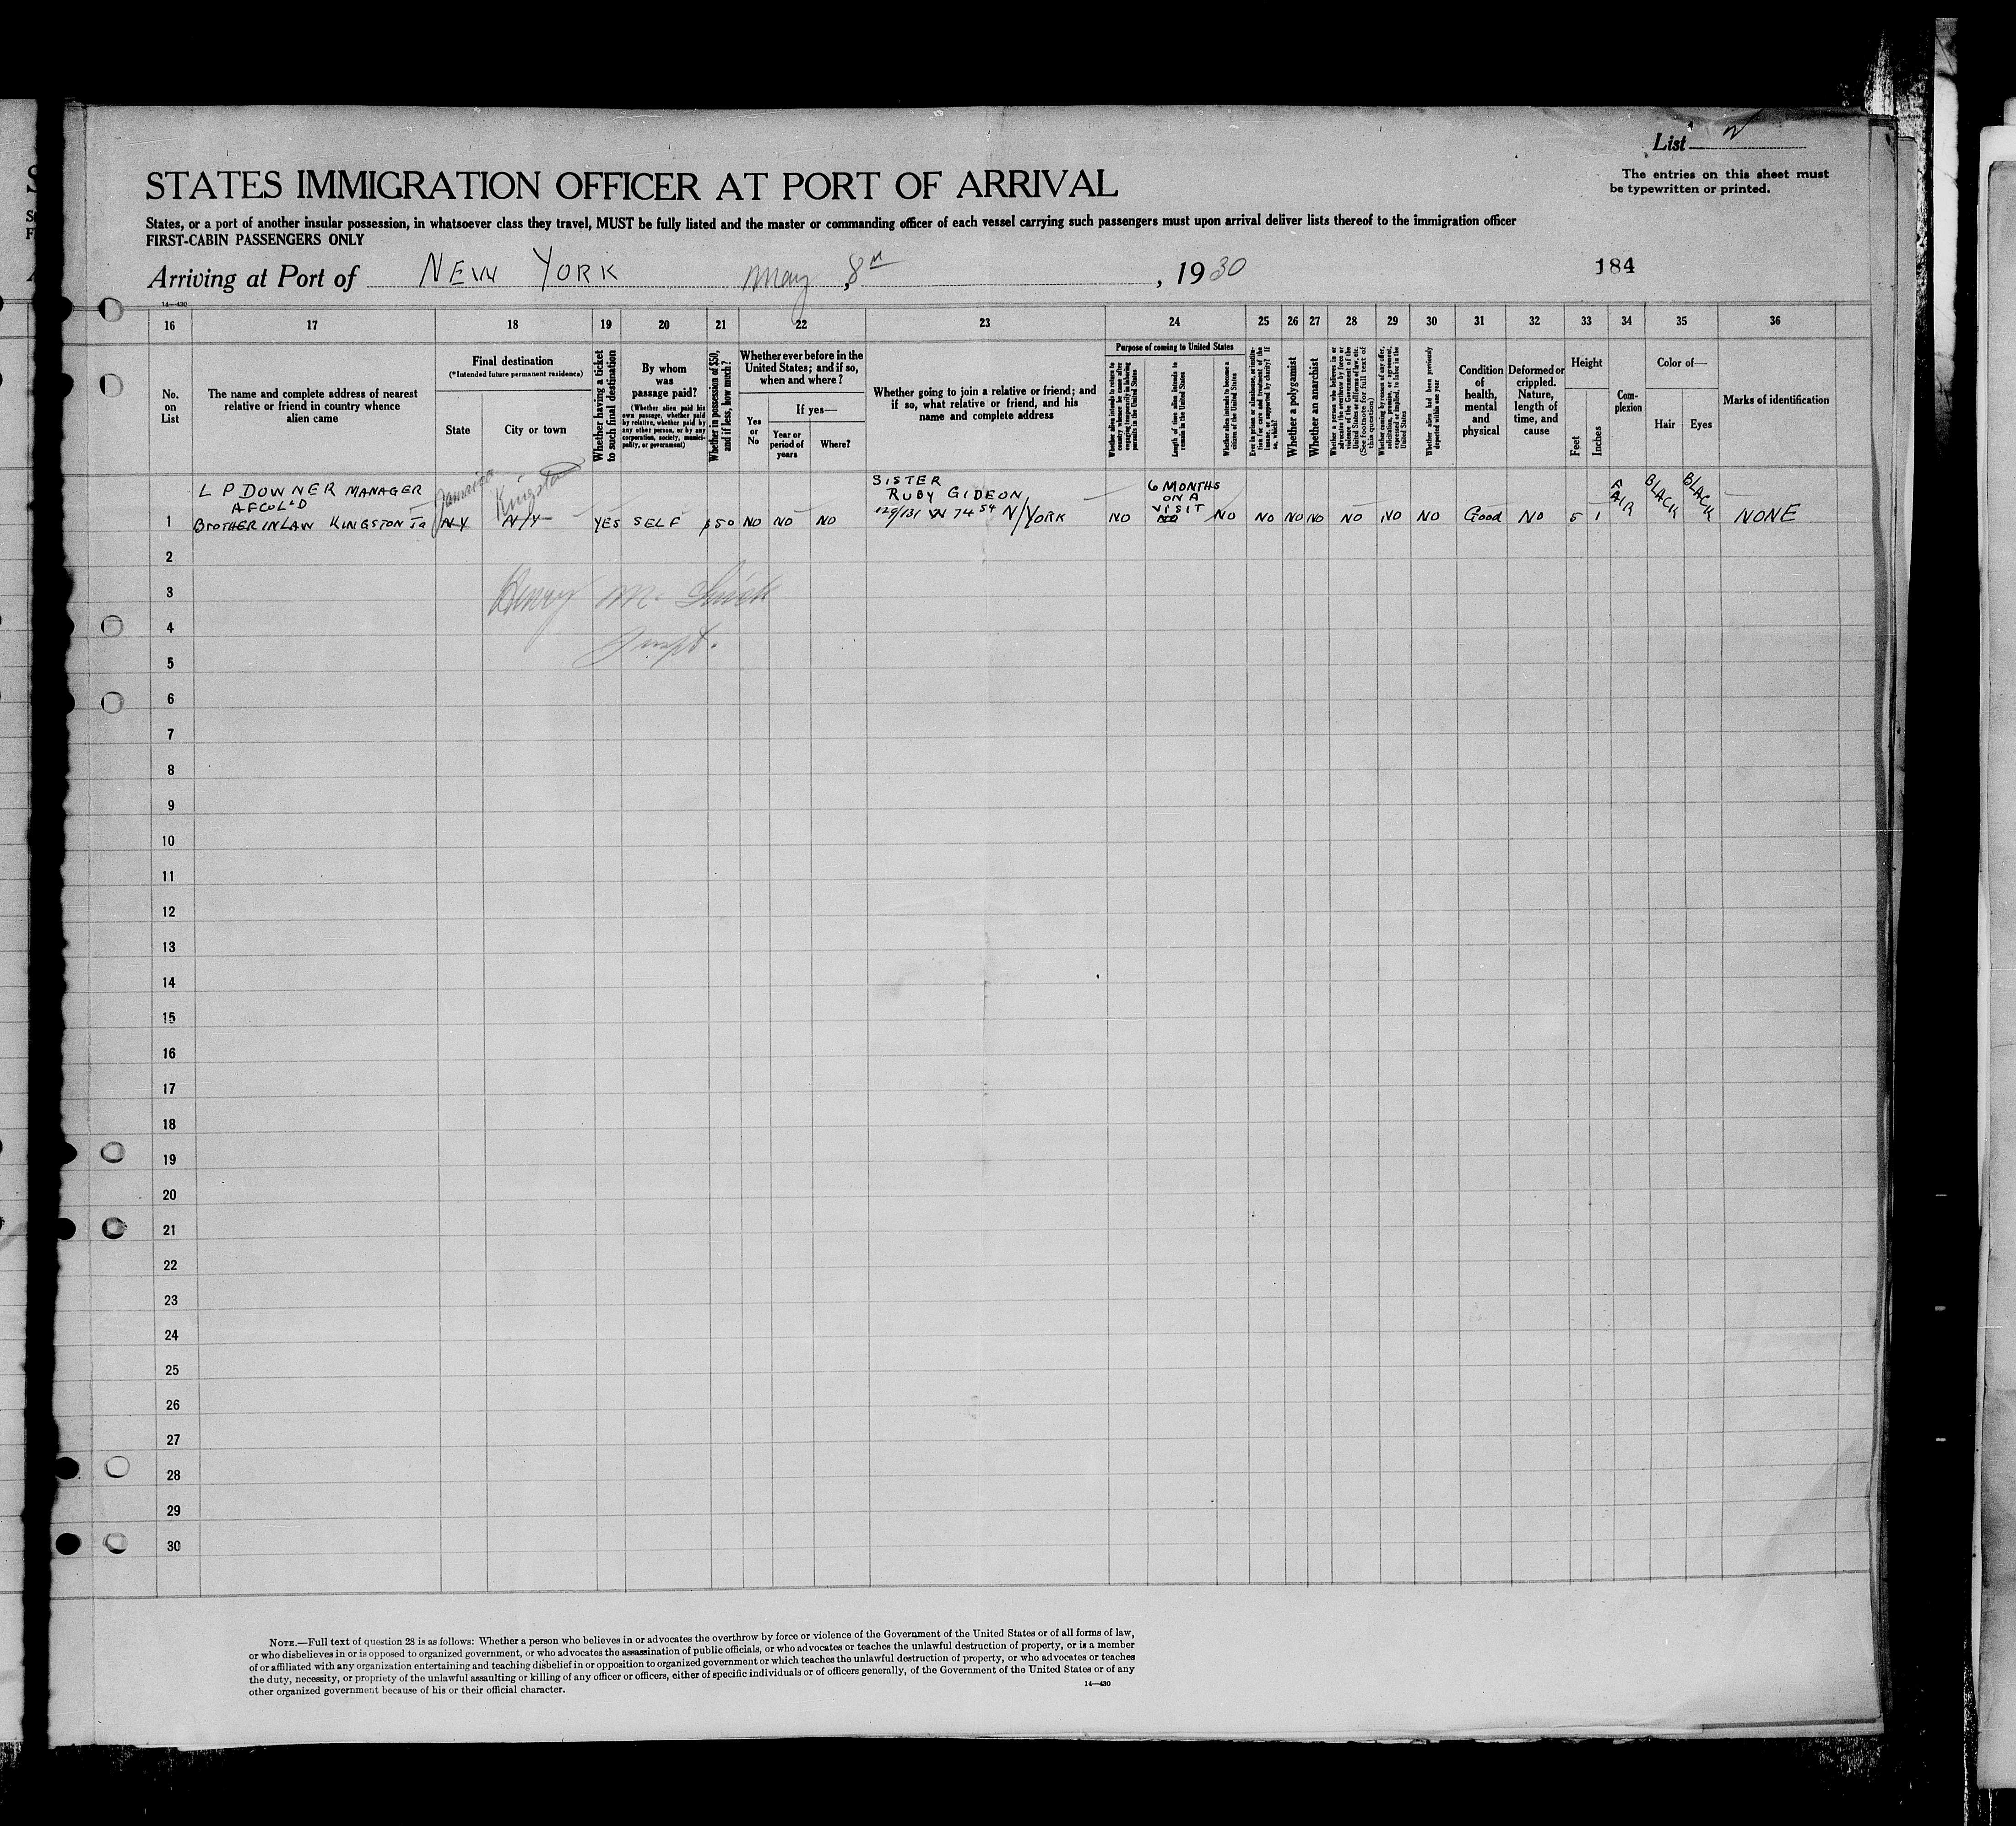 List 2
The entries on this sheet must
be typewritten or printed.
STATES IMMIGRATION OFFICER AT PORT OF ARRIVAL
States, or a port of another insular possession, in whatsoever class they travel, MUST be fully listed and the master or commanding officer of each vessel carrying such passengers must upon arrival deliver lists thereof to the immigration officer
FIRST-CABIN PASSENGERS ONLY
Arriving at Port of NEW YORK May 8th, 1930
184
14—430
16 17 18 19 20 21 22 23 24 25 26 27 28 29 30 31 32 33 34 35 36
No.
on
List
The name and complete address of nearest
relative or friend in country whence
alien came
Final destination
(*Intended future permanent residence)
State
City or town
Whether having a ticket
to such final destination
By whom
was
passage paid?
(Whether alien paid his
own passage, whether paid
by relative, whether paid by
any other person, or by any
corporation, society, munici-
pality, or government)
Whether in possession of $50,
and if less, how much?
Whether ever before in the
United States; and if so,
when and where?
Yes
or
No
If yes—
Year or
period of
years
Where?
Whether going to join a relative or friend; and
if so, what relative or friend, and his
name and complete address
Purpose of coming to United States
Whether alien intends to return to
country whence he came after
engaging temporarily in laboring
pursuits in the United States
Length of time alien intends to
remain in the United States
Whether alien intends to become a
citizen of the United States
Ever in prison or almshouse, or institu-
tion for care and treatment of the
insane, or supported by charity? If
so, which?
Whether a polygamist
Whether an anarchist
Whether a person who believes in or
advocates the overthrow by force or
violence of the Government of the
United States or all forms of law, etc.
(See footnote for full text of
this question)
Whether coming by reason of any offer,
solicitation, promise, or agreement,
expressed or implied, to labor in the
United States
Whether alien had been previously
deported within one year
Condition
of
health,
mental
and
physical
Deformed or
crippled.
Nature,
length of
time, and
cause
Height
Feet
Inches
Com-
plexion
Color of—
Hair
Eyes
Marks of identification
L P DOWNER MANAGER
AFCOLTD
BROTHER IN LAW KINGSTON Ja
Jamaica
Kingston
1 NY N/Y YES SELF $50 NO NO NO
SISTER
RUBY GIDEON
129/131 W 74 St N/YORK
NO
6 MONTHS
ON A
VISIT
NO
NO NO NO NO NO NO NO Good NO 5 1 FAIR BLACK BLACK NONE
2
3
Henry
4
Inspt.
5
6
7
8
9
10
11
12
13
14
15
16
17
18
19
20
21
22
23
24
25
26
27
28
29
30
NOTE.—Full text of question 28 is as follows: Whether a person who believes in or advocates the overthrow by force or violence of the Government of the United States or of all forms of law,
or who disbelieves in or is opposed to organized government, or who advocates the assassination of public officials, or who advocates or teaches the unlawful destruction of property, or is a member
of or affiliated with any organization entertaining and teaching disbelief in or opposition to organized government or which teaches the unlawful destruction of property, or who advocates or teaches
the duty, necessity, or propriety of the unlawful assaulting or killing of any officer or officers, either of specific individuals or of officers generally, of the Government of the United States or of any
other organized government because of his or their official character.
14—430